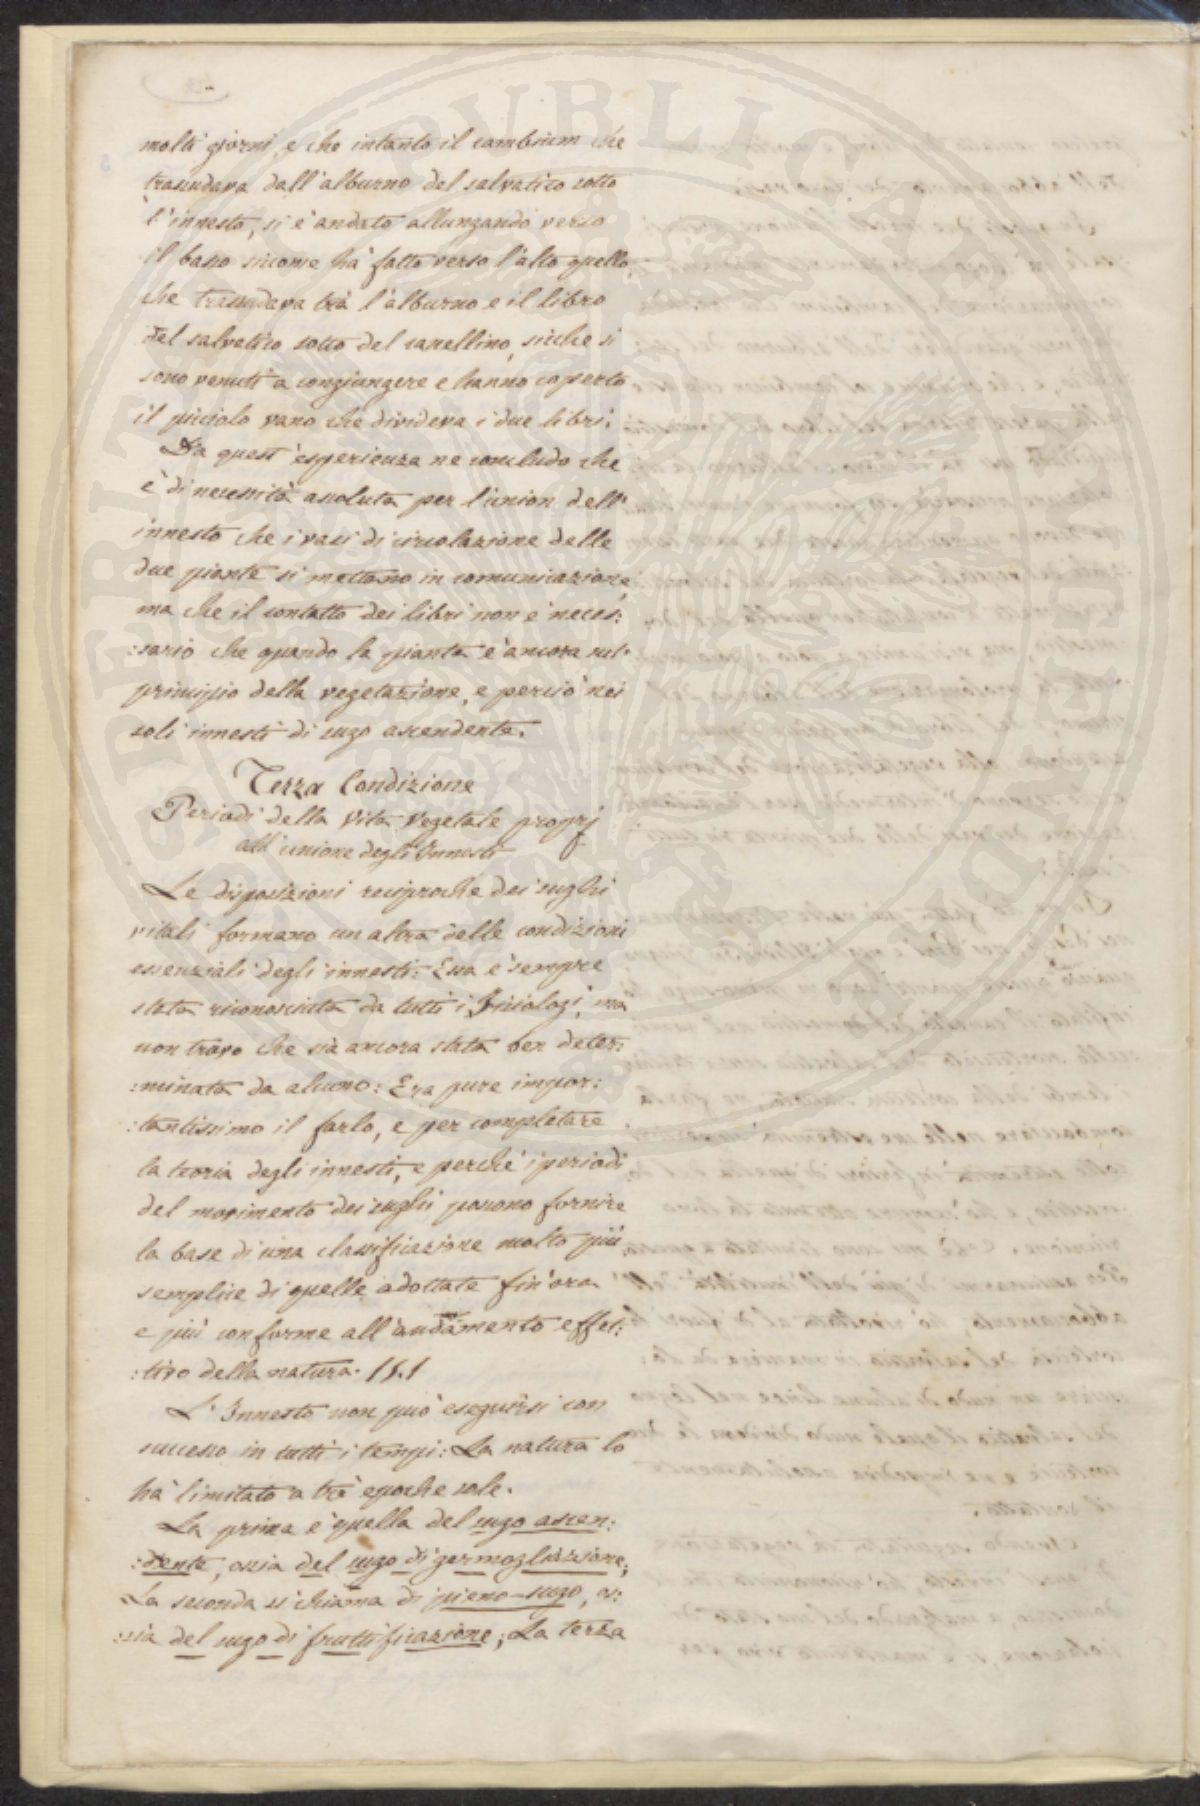 molti giorni, e che intanto il cambium che
trasudava dall'alburno del salvatico sotto
l'innesto, si è andato allunzando verso
il basso siccome hà fatto verso l'alto quello,
che trasudava trà l'alburno e il libro
del salvatico sotto del canellino, sicche si
sono venuti a congiungere e hanno coperto
il picciolo vano che divideva i due libri.
Da quest'esperienza ne concludo che
è di necessità assoluta per l'union dell'
innesto che i vasi di circolazione delle
due piante si mettano in comunicazione,
ma che il contatto dei libri non è neces:
:sario che quando la pianta è ancora sul
principio della vegetazione, e perciò nei
soli innesti di sugo ascendente.
Terza Condizione
Periodi della vita vegetale proprj
all'unione degli Innesti
Le disposizioni reciproche dei sughi
vitali formano un altra delle condizioni
essenziali degli innesti: Essa è sempre
stata riconosciuta da tutti i Fisiologi, ma
non trovo che sia ancora stata ben deter:
:minata da alcuno: Era pure impor:
:tantissimo il farlo, e per completare
la teoria degli innesti, e perchè i periodi
del movimento dei sughi possono fornire
la base di una classificazione molto più
semplice di quelle adottate fin'ora
e più conforme all'andamento effet:
:tivo della natura. 15.1
L'Innesto non può eseguirsi con
successo in tutti i tempi: La natura lo
hà limitato a trè epoche sole.
La prima è quella del sugo ascen:
:dente, ossia del sugo di germogliazione;
La seconda si chiama di pieno-sugo, os:
:sia del sugo di fruttificazione; La terza